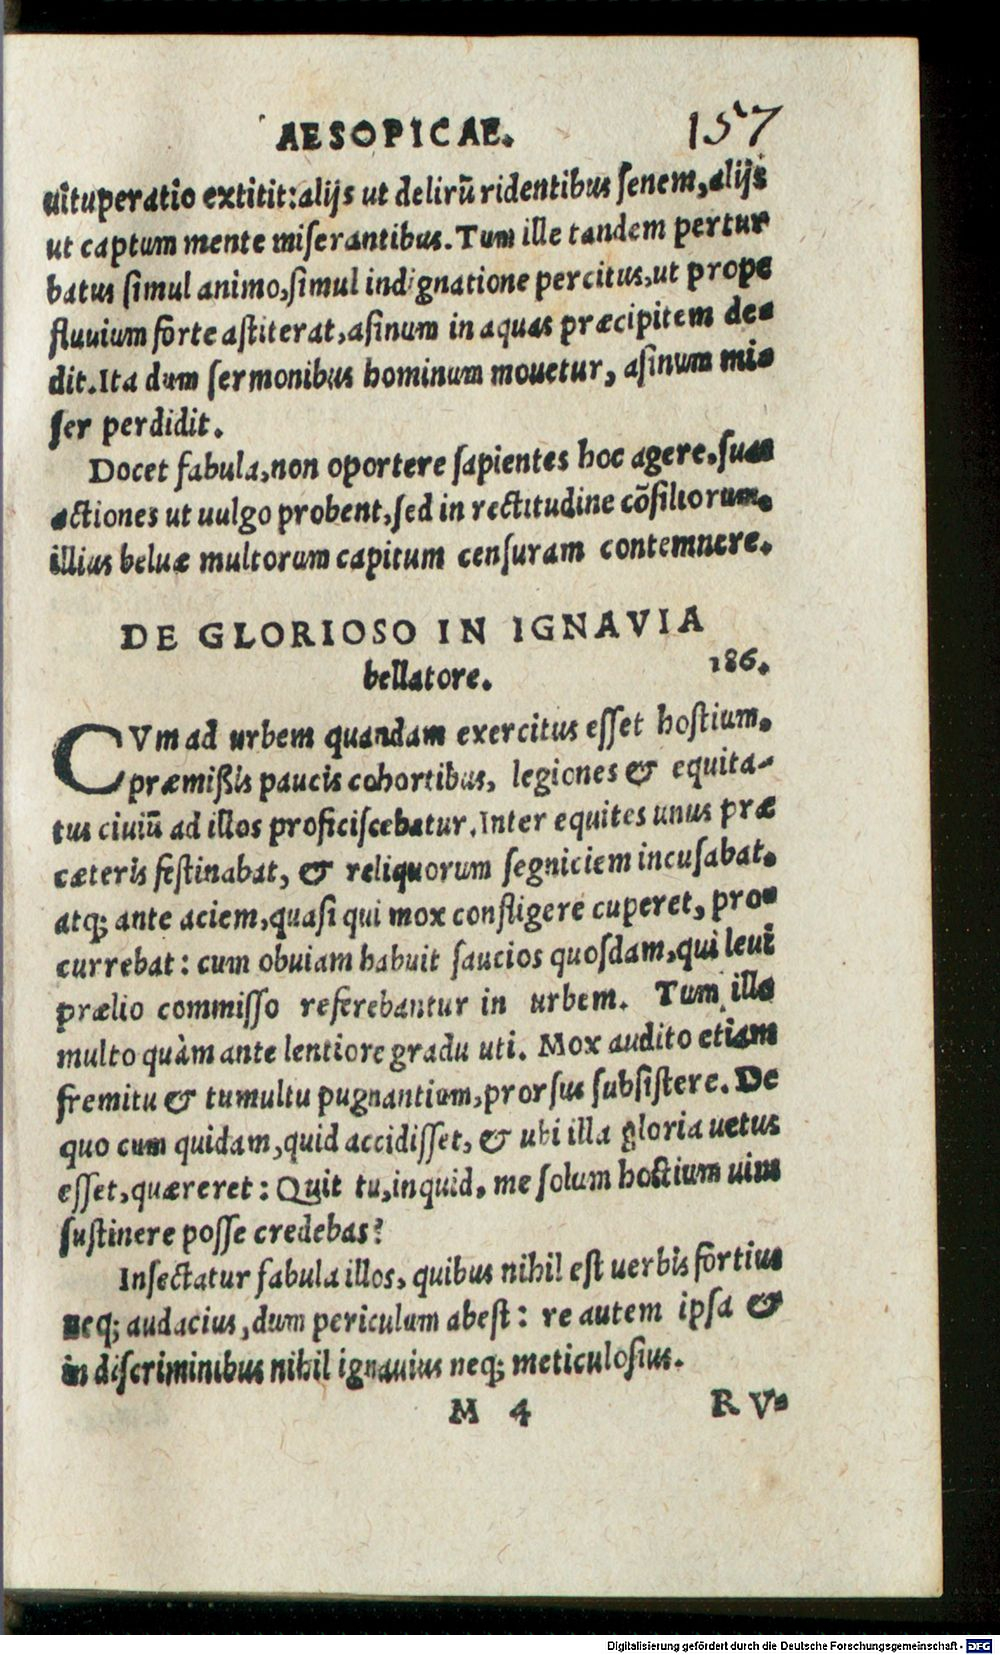 AESOPICAE. 157
uituperatio extitit: alijs ut delirũ ridentibus ſenem, alijs
ut captum mente miſerantibus. Tum ille tandem pertur
batus ſimul animo, ſimul indignatione percitus, ut prope
fluuium forte aſtiterat, aſinum in aquas præcipitem de-
dit. Ita dum ſermonibus hominum mouetur, aſinum mi-
ſer perdidit.
Docet fabula, non oportere ſapientes hoc agere, ſuas
actiones ut uulgo probent, ſed in rectitudine cõſiliorum,
illius beluæ multorum capitum cenſuram contemnere.
DE GLORIOSO IN IGNAVIA
bellatore. 186.
CVm ad urbem quandam exercitus eſſet hoſtium,
præmißis paucis cohortibus, legiones & equita-
tus ciuiũ ad illos proficiſcebatur. Inter equites unus præ
cæteris feſtinabat, & reliquorum ſegniciem incuſabat,
atq; ante aciem, quaſi qui mox confligere cuperet, pro-
currebat: cum obuiam habuit ſaucios quoſdam, qui leui
prælio commiſſo referebantur in urbem. Tum ille
multo quàm ante lentiore gradu uti. Mox audito etiam
fremitu & tumultu pugnantium, prorſus ſubſiſtere. De
quo cum quidam, quid accidiſſet, & ubi illa gloria uetus
eſſet, quæreret: Quit tu, inquid, me ſolum hoſtium uim
ſuſtinere poſſe credebas?
Inſectatur fabula illos, quibus nihil eſt uerbis fortius
neq; audacius, dum periculum abeſt: re autem ipſa &
in diſcriminibus nihil ignauius neq; meticuloſius.
M 4 RV-
Digitalisierung gefördert durch die Deutsche Forschungsgemeinschaft - DFG